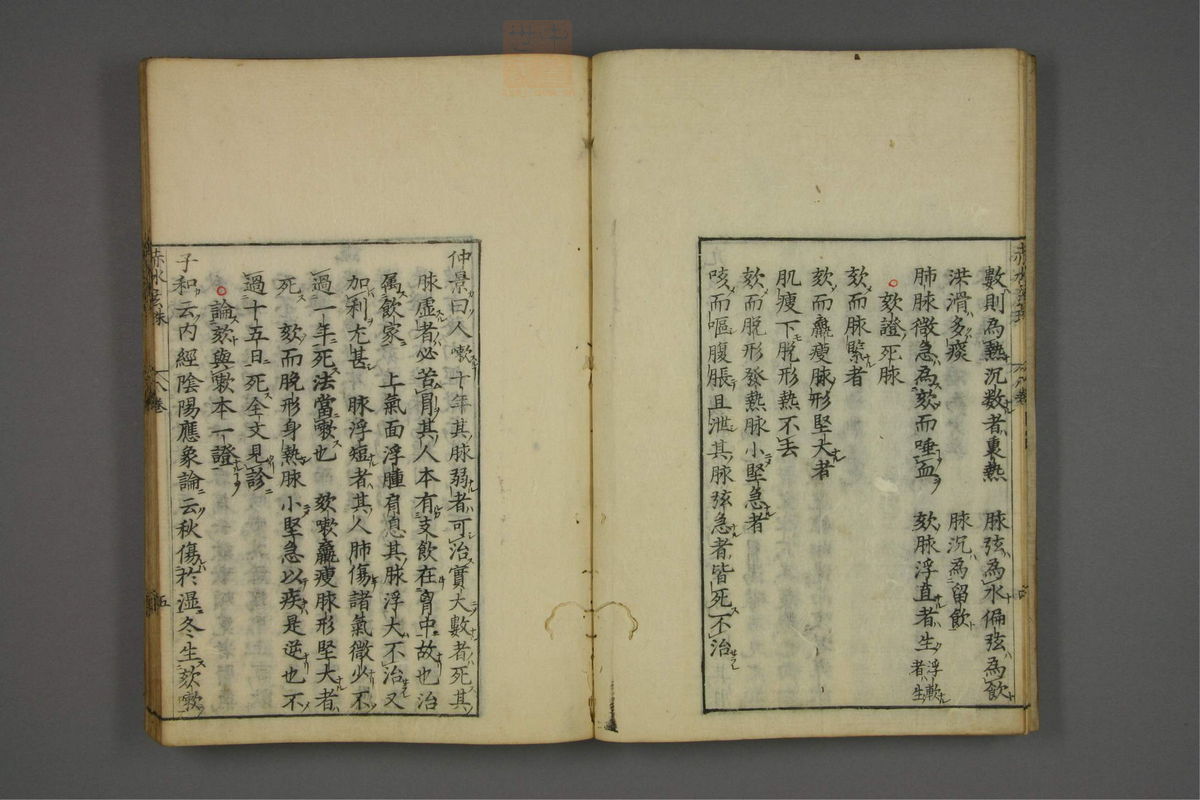 數則為熱沉数者裏熱　脉弦為水偏弦為飲
洪滑多痰　脉沉為留飲
肺脉微急為欬而唾血　欬脉浮直者生 浮軟者生
欬證死脉
欬而脉緊者
欬而羸瘦脉形堅大者
肌瘦下脫形熱不去
欬而脫形發熱脉小堅急者
咳而嘔腹脹且泄其脉弦急者皆死不治
仲景曰人嗽十年其脉弱者可治實大數者死其
脉虚者必苦冒其人本有支飲在胷中故也治
属飲家　上氣面浮腫肩息其脉浮大不治又
加利尤甚　脉浮短者其人肺傷諸氣微少不
過一年死法當嗽也　欬嗽羸瘦脉形堅大者
死　欬而脫形身熱脉小堅急以疾是逆也不
過十五日死全文見診
論欬與嗽本一證
子和云内經陰陽應象論云秋傷於湿冬生欬嗽
赤水玄珠
八卷
五